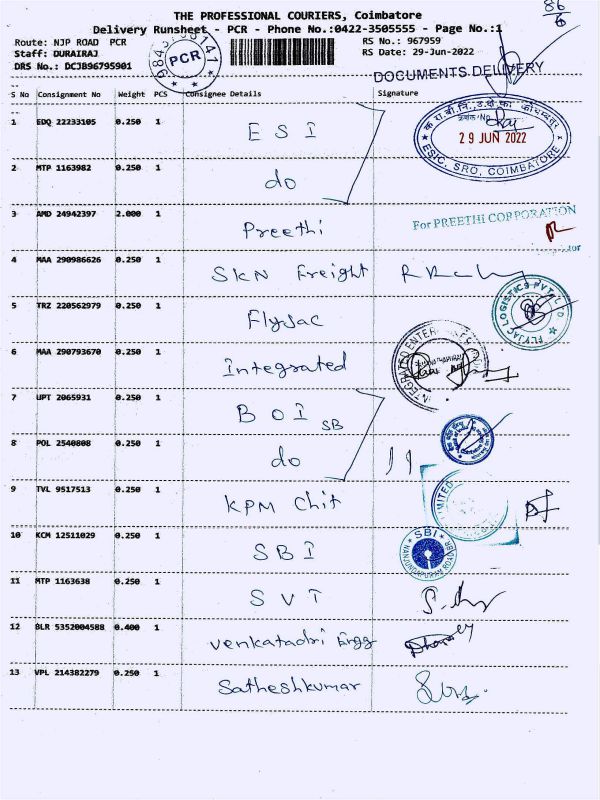 86
6
THE PROFESSIONAL COURIERS, Coimbatore
Delivery Runsheet - PCR - Phone No.:0422-3505555 - Page No.:1
Route: NJP ROAD PCR
RS No.: 967959
Staff: DURAIRAJ
RS Date: 29-Jun-2022
DRS No.: DCJB96795901
PCR
DOCUMENTS DELIVERY
S No Consignment No Weight PCS Consignee Details Signature
1 EDQ 22233105 0.250 1 ESI
29 JUN 2022
ESIC, SRO, COIMBATORE
2 MTP 1163982 0.250 1 do
3 AMD 24942397 2.000 1 Preethi
For PREETHI CORPORATION
4 MAA 290986626 0.250 1 SKN Freight
5 TRZ 220562979 0.250 1 Flyjac
FLYJAC LOGISTICS PVT LTD
6 MAA 290793670 0.250 1 Integrated
INTEGRATED ENTER
7 UPT 2065931 0.250 1 BOI SB
8 POL 2540808 0.250 1 do
9 TVL 9517513 0.250 1 KPM Chit
LIMITED
10 KCM 12511029 0.250 1 SBI
SBI
NANJUNDAPURAM ROAD
11 MTP 1163638 0.250 1 SVI
12 BLR 5352004588 0.400 1 Venkatadri Engg
13 VPL 214382279 0.250 1 Satheshkumar